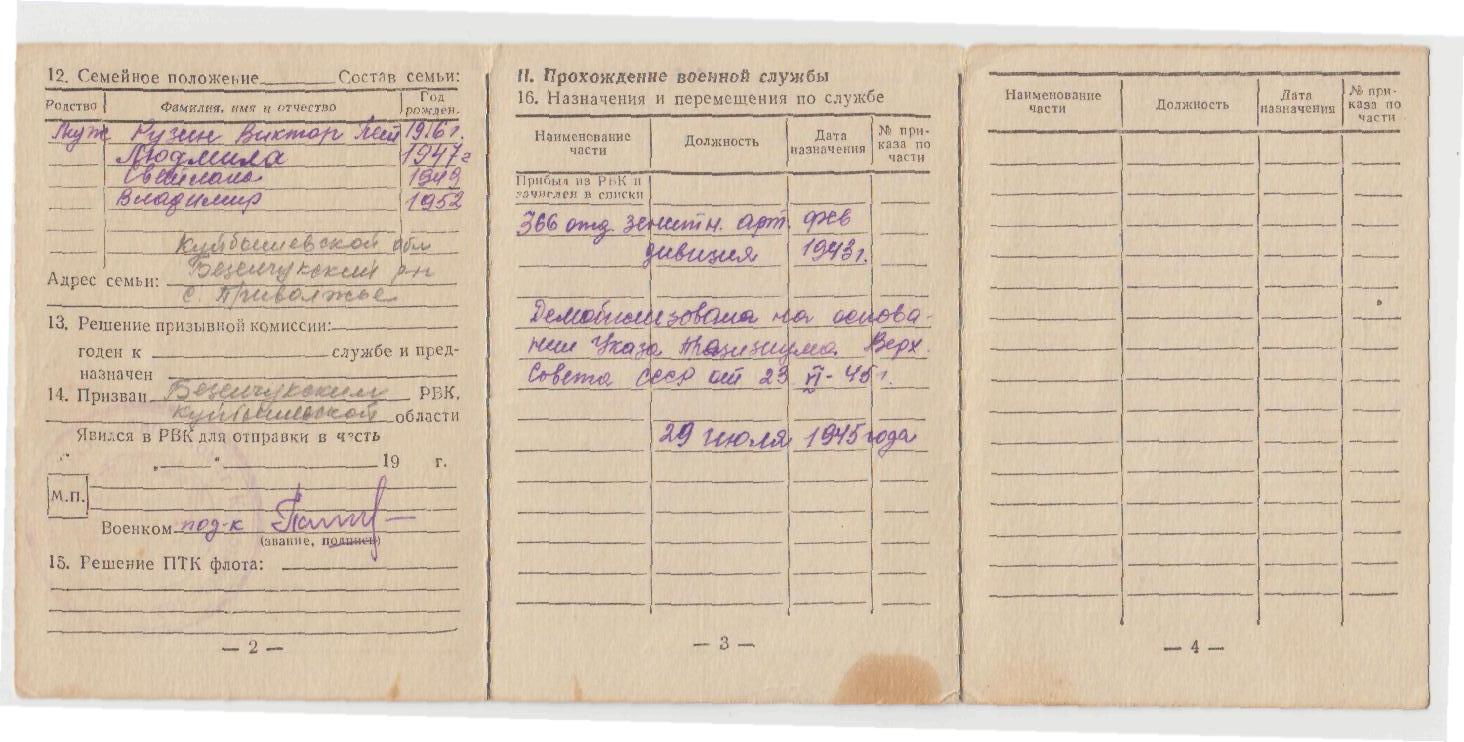 12. Семейное положение Состав семьи:
Родство Фамилия, имя и отчество Год рожден.
Муж Рузин Виктор 1916 г.
Людмила 1947 г
Светлана 1949
Владимир 1952
Куйбышевской обл
Безенчукский р-н
Адрес семьи:
с. Приволжье
13. Решение призывной комиссии:
годен к службе и пред-
назначен
14. Призван Безенчукским РВК,
Куйбышевской области
Явился в РВК для отправки в часть
„ “ 19 г.
М.П.
Военком под-к
(звание, подпись)
15. Решение ПТК флота:
— 2 —
II. Прохождение военной службы
16. Назначения и перемещения по службе
Наименование части Должность Дата назначения № при-каза по части
Прибыл из РВК и
зачислен в списки
366 отд. зенитн. арт. фев
дивизия 1943 г.
Демобилизована на основа-
нии Указа Президиума Верх.
Совета СССР от 23 VI - 45 г.
29 июля 1945 года
— 3 —
Наименование части Должность Дата назначения № при-каза по части
— 4 —